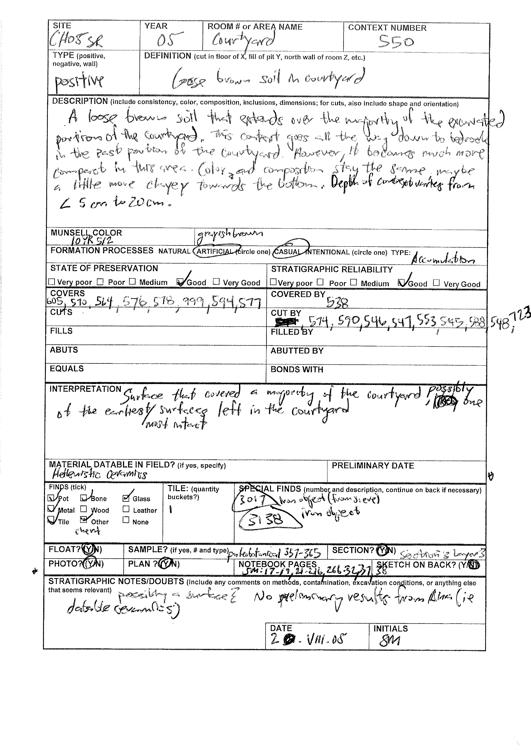 SITE YEAR ROOM # or AREA NAME CONTEXT NUMBER
CH05SR 05 Courtyard 550
TYPE (positive, negative, wall) DEFINITION (cut in floor of X, fill of pit Y, north wall of room Z, etc.)
positive Loose brown soil in courtyard
DESCRIPTION (include consistency, color, composition, inclusions, dimensions; for cuts, also include shape and orientation)
A loose brown soil that extends over the majority of the excavated
portion of the courtyard. This context goes all the way down to bedrock
in the east portion of the courtyard. However, it becomes much more
compact in this area. Color, and composition stay the same maybe
a little more clayey towards the bottom. Depth of context varies from
< 5 cm to 20cm.
MUNSELL COLOR
10YR 5/2 grayish brown
FORMATION PROCESSES NATURAL ARTIFICIAL (circle one) CASUAL INTENTIONAL (circle one) TYPE: Accumulation
STATE OF PRESERVATION STRATIGRAPHIC RELIABILITY
Very poor Poor Medium Good Very Good Very poor Poor Medium Good Very Good
COVERS COVERED BY
605, 570, 564, 576, 578, 999, 594, 577 538
CUTS CUT BY
574, 590, 546, 547, 553, 545, 588, 548, 723
FILLS FILLED BY
ABUTS ABUTTED BY
EQUALS BONDS WITH
INTERPRETATION Surface that covered a majority of the courtyard possibly one
of the earliest/ surfaces left in the courtyard
most intact
MATERIAL DATABLE IN FIELD? (if yes, specify) PRELIMINARY DATE
Hellenistic ceramics
FINDS (tick) TILE: (quantity buckets?) SPECIAL FINDS (number and description, continue on back if necessary)
Pot Bone Glass 1 3017 iron object (from sieve)
Metal Wood Leather 3138 iron object
Tile Other None
FLOAT? (Y/N) SAMPLE? (if yes, # and type) 357-365 SECTION? (Y/N) Section 3 Layer 3
PHOTO? (Y/N) PLAN? (Y/N) NOTEBOOK PAGES SKETCH ON BACK? (Y/N)
STRATIGRAPHIC NOTES/DOUBTS (Include any comments on methods, contamination, excavation conditions, or anything else
that seems relevant) possibly a surface? No preliminary results from Alma (ie
datable ceramics)
DATE INITIALS
2 .VIII.05 SM